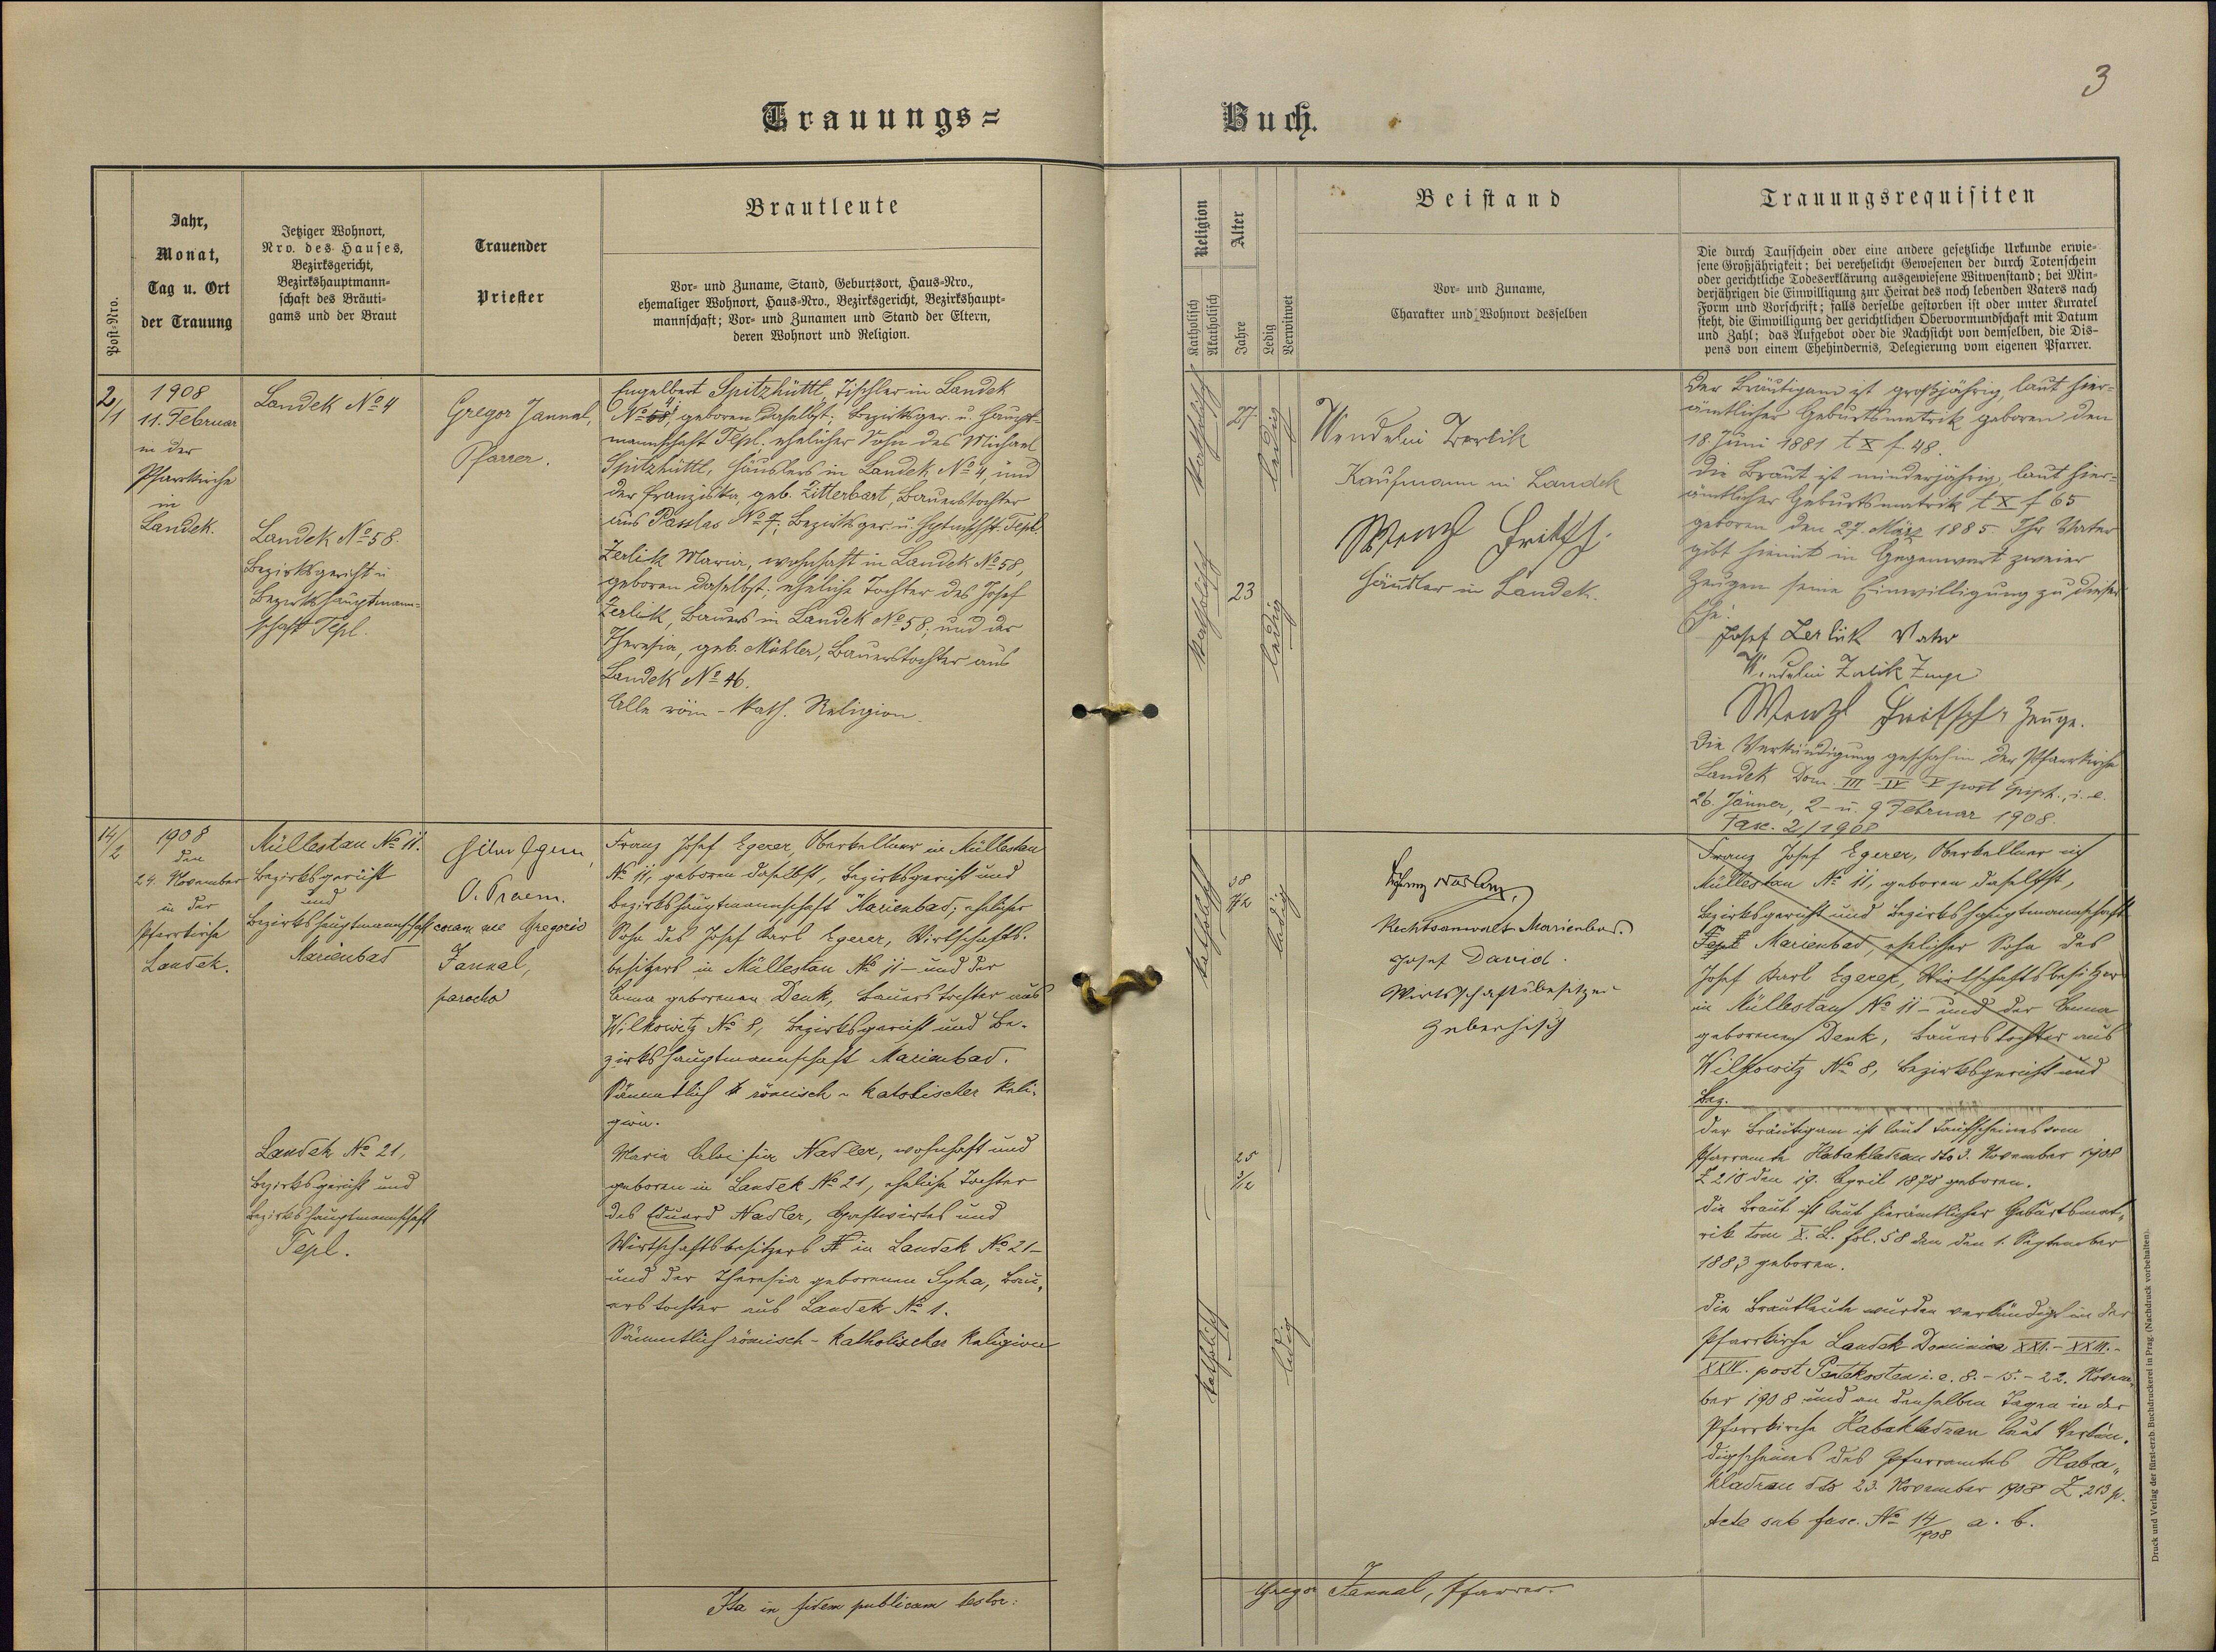 3
Trauungs=
Buch.
Post=Nro.
Jahr,
Monat,
Tag u. Ort
der Trauung
Jetziger Wohnort,
Nro. des Hauses,
Bezirksgericht,
Bezirkshauptmann=
schaft des Bräuti=
gams und der Braut
Trauender
Priester
Brautleute
Vor= und Zuname, Stand, Geburtsort, Haus=Nro.,
ehemaliger Wohnort, Haus=Nro., Bezirksgericht, Bezirkshaupt=
mannschaft; Vor= und Zunamen und Stand der Eltern,
deren Wohnort und Religion.
Religion
Katholisch
Akatholisch
Alter
Jahre
Ledig
Verwitwet
Beistand
Vor= und Zuname,
Charakter und Wohnort desselben
Trauungsrequisiten
Die durch Taufschein oder eine andere gesetzliche Urkunde erwie=
sene Großjährigkeit; bei verehelicht Gewesenen der durch Totenschein
oder gerichtliche Todeserklärung ausgewiesene Witwenstand; bei Min=
derjährigen die Einwilligung zur Heirat des noch lebenden Vaters nach
Form und Vorschrift; falls derselbe gestorben ist oder unter Kuratel
steht, die Einwilligung der gerichtlichen Obervormundschaft mit Datum
und Zahl; das Aufgebot oder die Nachsicht von demselben, die Dis=
pens von einem Ehehindernis, Delegierung vom eigenen Pfarrer.
2/1
1908
11. Februar
in der
Pfarrkirche
in
Landek.
Landek No 4
Landek No 58.
Bezirksgericht u
Bezirkshauptmann=
schaft Tepl.
Gregor Jannal,
Pfarrer.
Engelbert Spitzhüttl, Tischler in Landek
No 58 4, geboren daselbst; Bezirksger. u. Haupt=
mannschaft Tepl. ehelicher Sohn des Michael
Spitzhüttl, Häuslers in Landek No 4, und
der Franziska, geb. Zitterbart, Bauerstochter
aus Passlas No 7, Bezirksger. u. Hptmschft. Tepl.
Zerlik Maria, wohnhaft in Landek No 58,
geboren daselbst; eheliche Tochter des Josef
Zerlik, Bauers in Landek No 58. und der
Theresia, geb. Köhler, Bauerstochter aus
Landek No 46.
Alle röm - kath. Religion.
Katholisch
27
ledig
Katholisch
23
ledig
Wendelin Zerlik
Kaufmann in Landek
Wenzl Fritsch.
Händler in Landek.
Der Bräutigam ist großjährig, laut hier=
ämtlicher Geburtsmatrik geboren den
18. Juni 1881 t X f. 48.
Die Braut ist minderjährig, laut hier=
ämtlicher Geburtsmatrik t X f 65
geboren den 27. März 1885. Ihr Vater
gibt hiemit in Gegenwart zweier
Zeugen seine Einwilligung zu dieser
Ehe:
Josef Zerlik Vater
Wendelin Zerlik Zeuge
Wenzl Fritsch Zeuge.
Die Verkündigung geschah in der Pfarrkirche
Landek Dom. III - IV - V post Epiph., i. e.
26. Jänner, 2- u. 9 Februar 1908.
Fasc. 2/1908
14/2
1908
den
24. November
in der
Pfarrkirche
Landek.
Müllestau No 11.
Bezirksgericht
und
Bezirkshauptmannschaft
Marienbad
Landek No 21,
Bezirksgericht und
Bezirkshauptmannschaft
Tepl.
O. Praem.
coram me Gregorio
Jannal,
parocho
Franz Josef Egerer, Oberkellner in Müllestau
No 11, geboren daselbst, Bezirksgericht und
Bezirkshauptmannschaft Marienbad, ehelicher
Sohn des Josef Karl Egerer, Wirtschafts-
besitzers in Müllestau No 11 - und der
Anna geborenen Denk, Bauerstochter aus
Wilkowitz No 8, Bezirksgericht und Be-
zirkshauptmannschaft Marienbad.
Sämmtlich römisch - katolischer Reli-
gion.
Maria Aloisia Nadler, wohnhaft und
geboren in Landek No 21, eheliche Tochter
des Eduard Nadler, Gastwirtes und
Wirtschaftsbesitzers in Landek No 21 -
und der Theresia geborenen Syha, Bau-
erstochter aus Landek No 1.
Sämmtlich römisch - katholischer Religion
katholisch
38
7/12
ledig
25
3/12
katholisch
ledig
Rechtsanwalt Marienbad.
Josef David.
Wirtschaftsbesitzer
Franz Josef Egerer, Oberkellner in
Müllestau No 11, geboren daselbst,
Bezirksgericht und Bezirkshauptmannschaft
Tepl Marienbad, ehelicher Sohn des
Josef Karl Egerer, Wirtschaftsbesitzer
in Müllestau No 11 - und der Anna
gebornen Denk, Bauerstochter aus
Wilkowitz No 8, Bezirksgericht und
Bez.
Der Bräutigam ist laut Taufscheines vom
Pfarramte Habakladrau dto 3. November 1908
Z 210 den 19. April 1878 geboren.
Die Braut ist laut hierämtlicher Geburtsmat-
rik tom X. L. fol. 58 den 1. September
1883 geboren.
Die Brautleute wurden verkündigt in der
Pfarrkirche Landek Dominica XXII. - XXIII. -
XXIV. post Pentekosten i. e. 8. - 15. - 22. Novem-
ber 1908 und an denselben Tagen in der
Pfarrkirche Habakladrau laut Verkün-
digscheines des Pfarramtes Haba-
kladrau dto 23. November 1908 Z 213 p.
Acta sub fasc. No 14/1908 a. b.
Ita in fidem publicam testor:
Gregor Jannal, Pfarrer.
Druck und Verlag der fürst-erzb. Buchdruckerei in Prag. (Nachdruck vorbehalten).